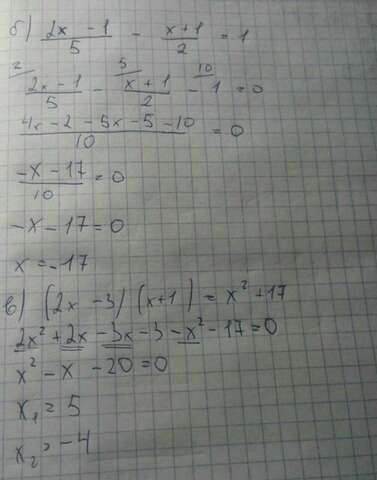 б) (2x - 1)/5 - (x + 1)/2 = 1
2 5 10
(2x - 1)/5 - (x + 1)/2 - 1 = 0
(4x - 2 - 5x - 5 - 10)/10 = 0
(-x - 17)/10 = 0
-x - 17 = 0
x = -17
в) (2x - 3) (x + 1) = x² + 17
2x² + 2x - 3x - 3 - x² - 17 = 0
x² - x - 20 = 0
x₁ = 5
x₂ = -4